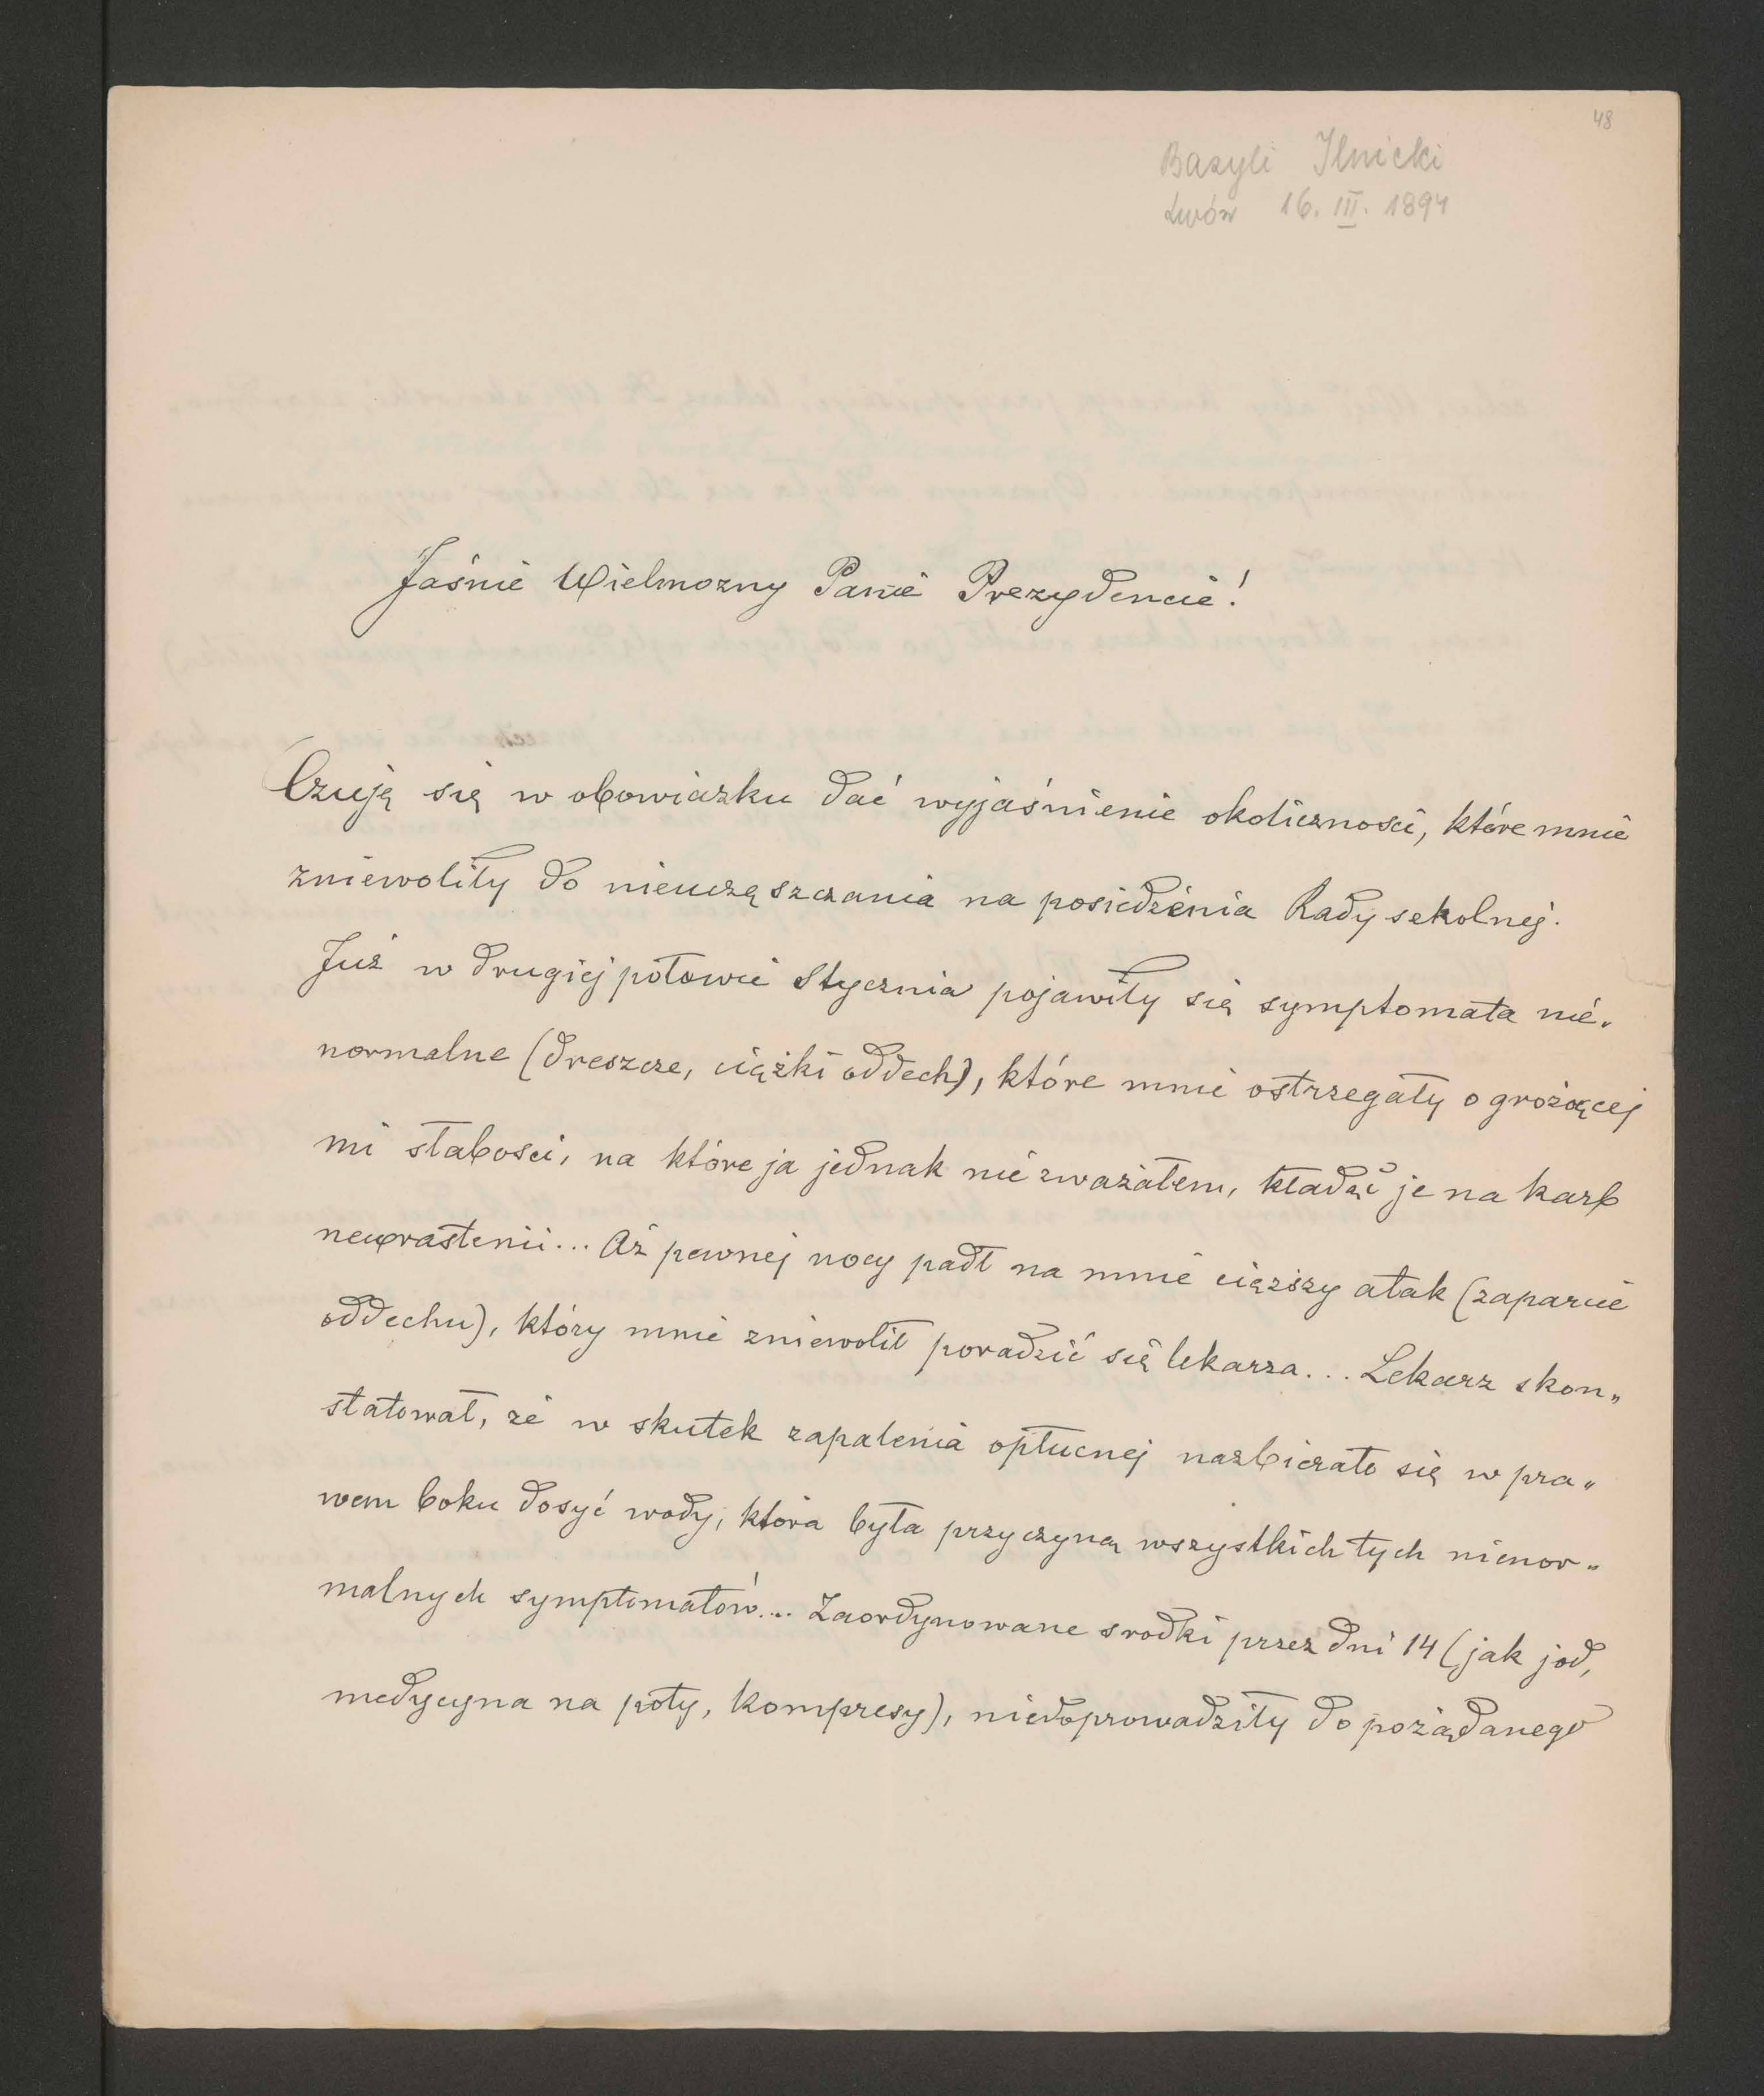 48
Bazyli Ilnicki
Lwów 16. III. 1894
Jaśnie Wielmożny Panie Prezydencie!
Czuję się w obowiązku dać wyjaśnienie okoliczności, które mnie
zniewoliły do nieuczęszczania na posiedzenia Rady szkolnej.
Już w drugiej połowie Stycznia pojawiły się symptomata nie-
normalne (dreszcze, ciężki oddech), które mnie ostrzegały o grożącej
mi słabości, na które ja jednak nie zważałem, kładąc je na karb
neurastenii... Aż pewnej nocy padł na mnie cięższy atak (zaparcie
oddechu), który mnie zniewolił poradzić się lekarza... Lekarz skon„
statował, że w skutek zapalenia opłucnej nazbierało się w pra„
wem boku dosyć wody, która była przyczyną wszystkich tych nienor„
malnych symptomatów... Zaordynowane srodki przez dni 14 (jak jod,
medycyna na poty, kompresy), niedoprowadziły do pożądanego